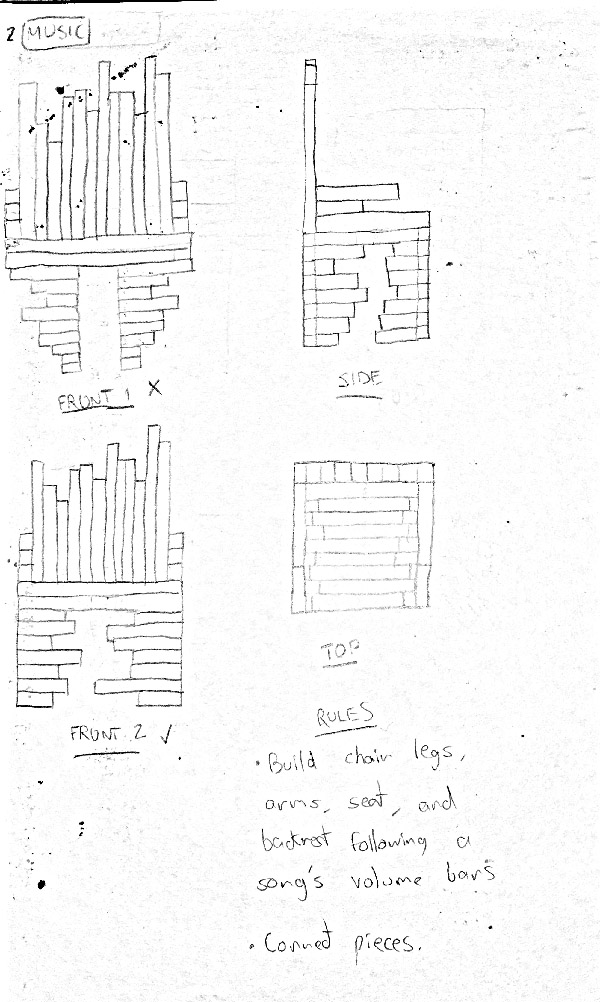 2 MUSIC
FRONT 1 X
SIDE
FRONT 2 ✓
TOP
RULES
• Build chair legs,
arms, seat, and
backrest following a
song's volume bars
• Connect pieces.